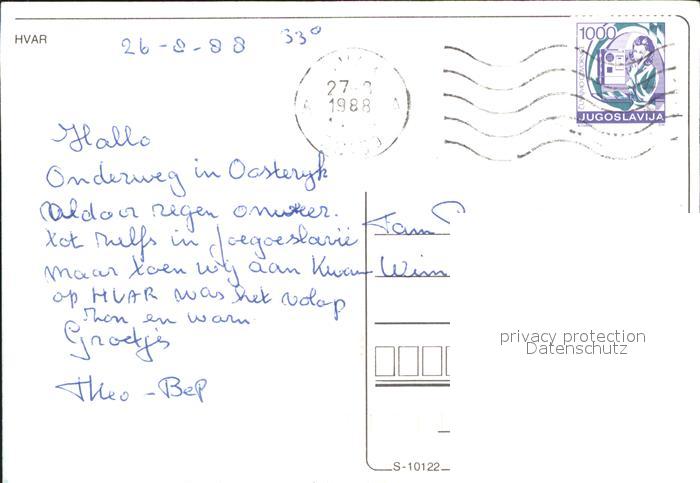 HVAR
26-8-88 33°
27-8
1988
1000
JUGOSLAVIJA
Hallo
Onderweg in Oosteryk
aldoor regen onweer.
tot zelfs in Joegoeslavië
maar toen wij aan kwam
op HVAR was het volop
zon en warm
Groetjes
Theo - Bep
Fam
Wim
privacy protection
Datenschutz
S-10122